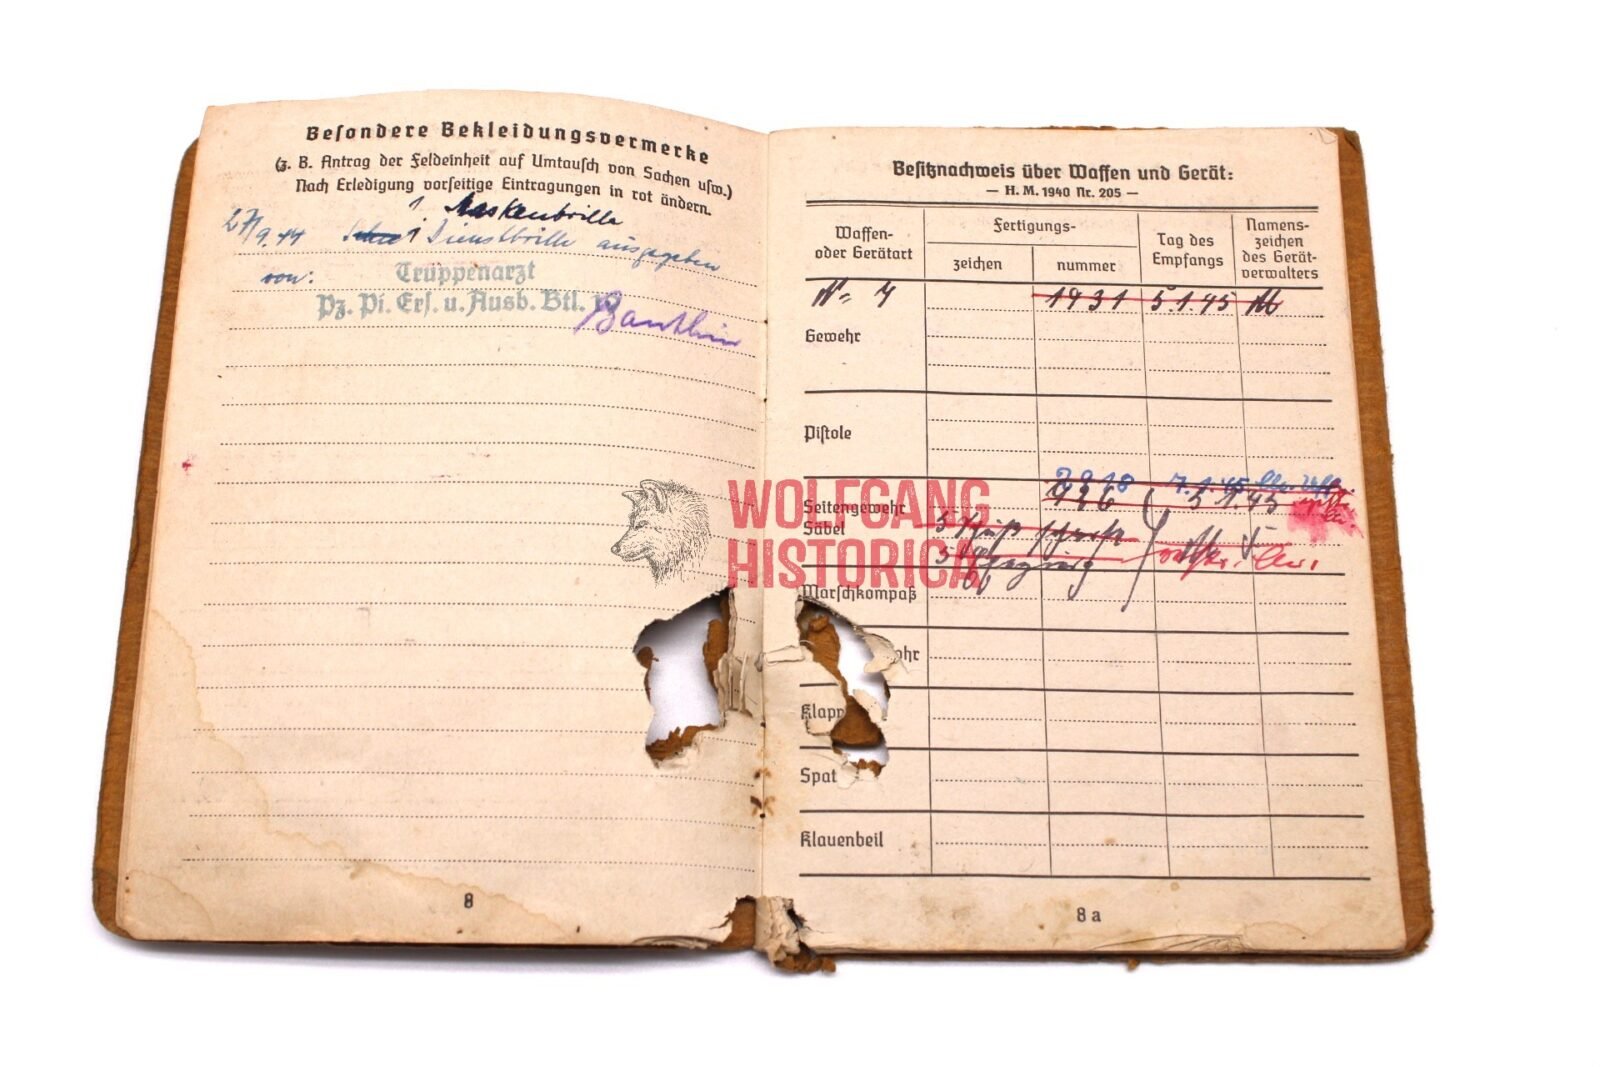 Besondere Bekleidungsvermerke
(z. B. Antrag der Feldeinheit auf Umtausch von Sachen usw.)
Nach Erledigung vorseitige Eintragungen in rot ändern.
1. Maskenbrille
27/9.44 1 Dienstbrille ausgegeben
von:
Truppenarzt
Pz. Pi. Ers. u. Ausb. Btl.
8
Besitznachweis über Waffen und Gerät:
— H. M. 1940 Nr. 205 —
Waffen-
oder Gerätart
Fertigungs-
zeichen
nummer
Tag des
Empfangs
Namens-
zeichen
des Gerät-
verwalters
1931 5.1.45
Gewehr
Pistole
2818 7.1.45
Seitengewehr
926 5.1.45
Säbel
Marschkompaß
ohr
Klapp
Spat
Klauenbeil
8 a
WOLFGANG
HISTORICA